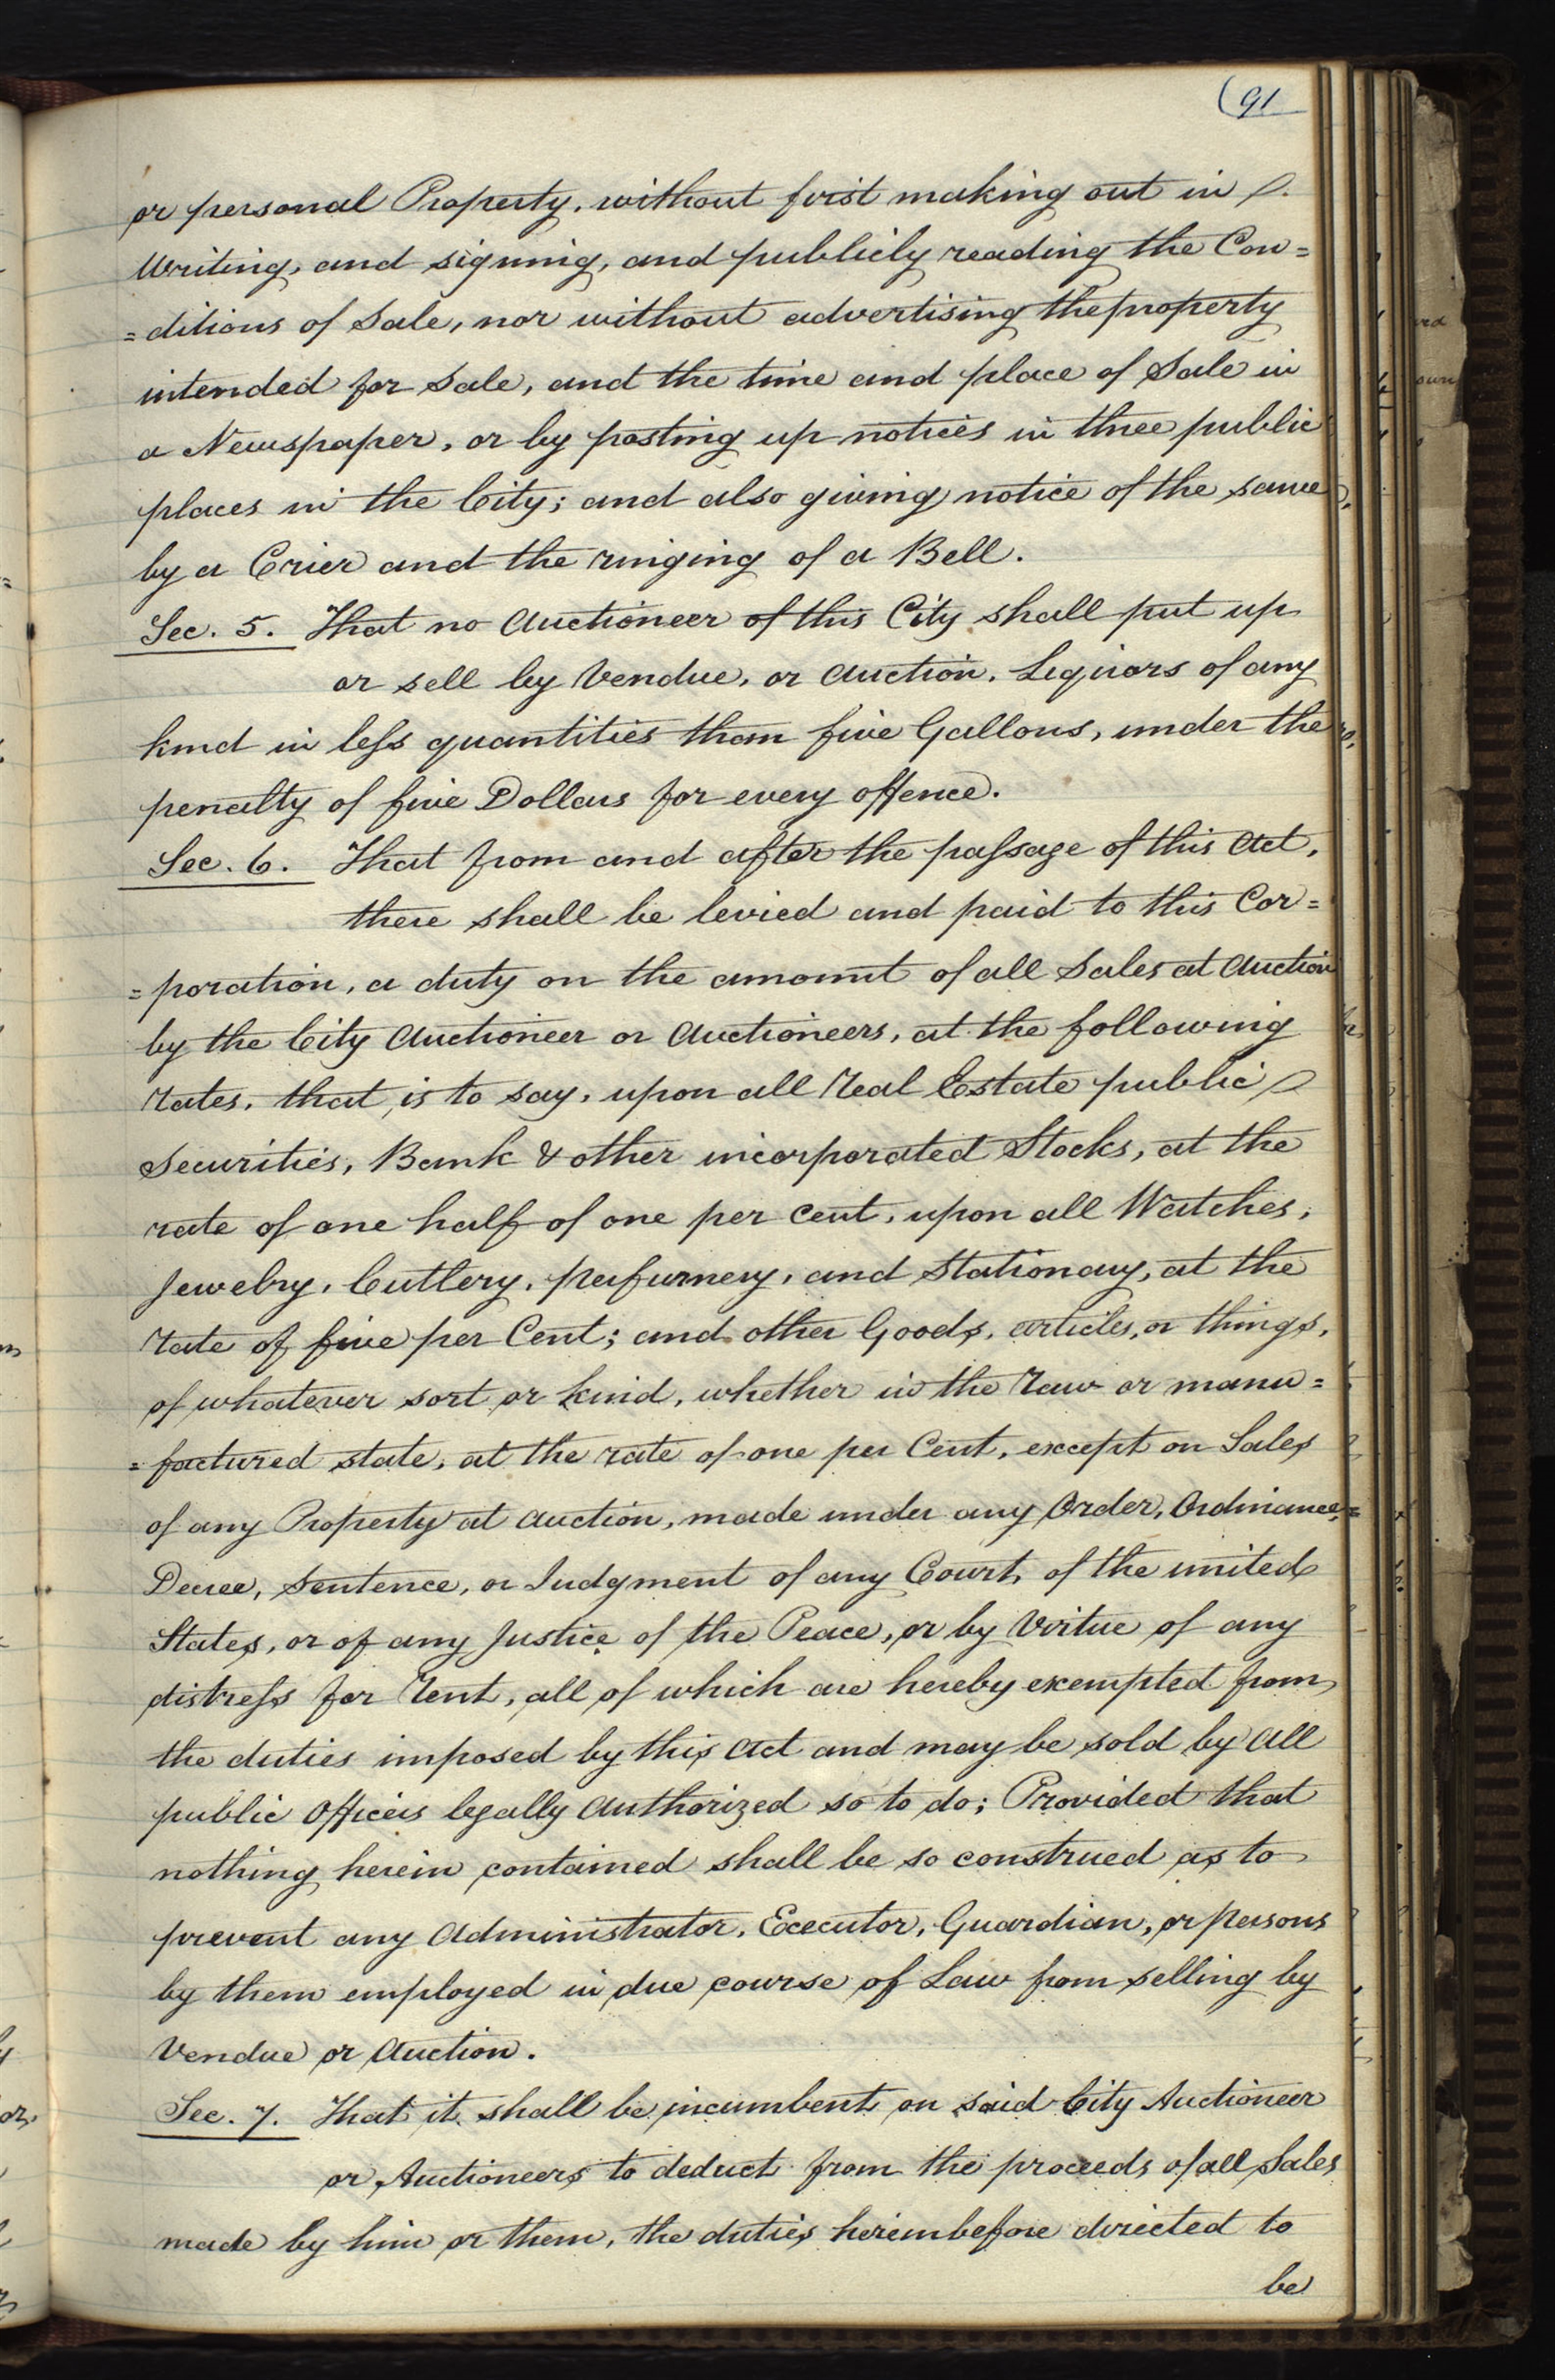 (91
or personal Property, without first making out in
Writing, and signing, and publicly reading the Con=
=ditions of Sale, nor without advertising the property
intended for Sale, and the time and place of Sale in
a Newspaper, or by posting up notices in three public
places in the City; and also giving notice of the same
by a Crier and the ringing of a Bell.
Sec. 5. That no Auctioneer of this City shall put up
or sell by Vendue, or Auction, Liquors of any
kind in less quantities than five Gallons, under the
penalty of five Dollars for every offence.
Sec. 6. That from and after the passage of this Act,
there shall be levied and paid to this Cor=
=poration, a duty on the amount of all Sales at Auction
by the City Auctioneer or Auctioneers, at the following
rates, that is to say, upon all real Estate public
Securities, Bank & other incorporated Stocks, at the
rate of one half of one per cent, upon all Watches,
Jewelry, Cutlery, perfumery, and Stationary, at the
rate of five per Cent; and other Goods, articles, or things,
of whatever sort or kind, whether in the raw or manu=
=factured state, at the rate of one per Cent, except on Sales
of any Property at auction, made under any Order, Ordinance,
Decree, Sentence, or Judgment of any Court, of the united
States, or of any Justice of the Peace, or by Virtue of any
distress for Rent, all of which are hereby exempted from
the duties imposed by this Act and may be sold by all
public Officers legally Authorized so to do; Provided that
nothing herein contained shall be so construed as to
prevent any Administrator, Executor, Guardian, or persons
by them employed in due course of Law from selling by
Vendue or Auction.
Sec. 7. That it shall be incumbent on said City Auctioneer
or Auctioneers to deduct from the proceeds of all Sales
made by him or them, the duties hereinbefore directed to
be